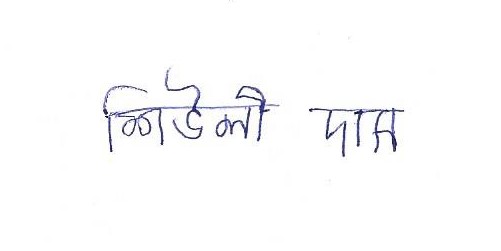 শিউলী দাস